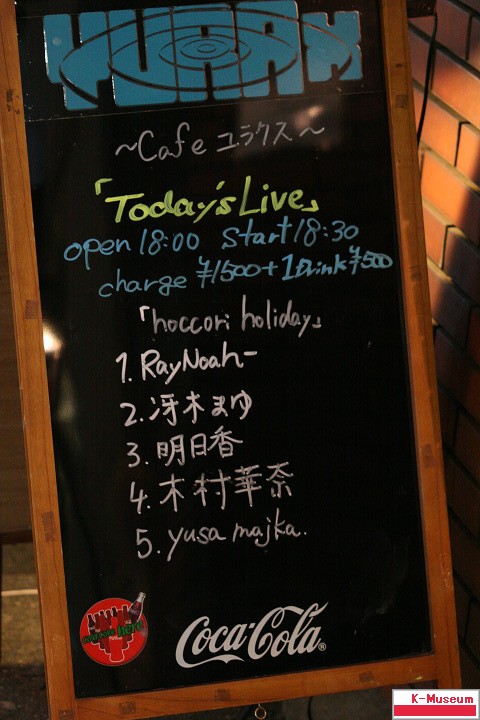 YURAX
~Cafe ユラクス~
「Today's Live」
open 18:00 Start 18:30
charge ¥1500+1Drink ¥500
「hoccori holiday」
1. RayNoah-
2. 冴木まゆ
3. 明日香
4. 木村華奈
5. yusa majka.
Coca-Cola®
K-Museum